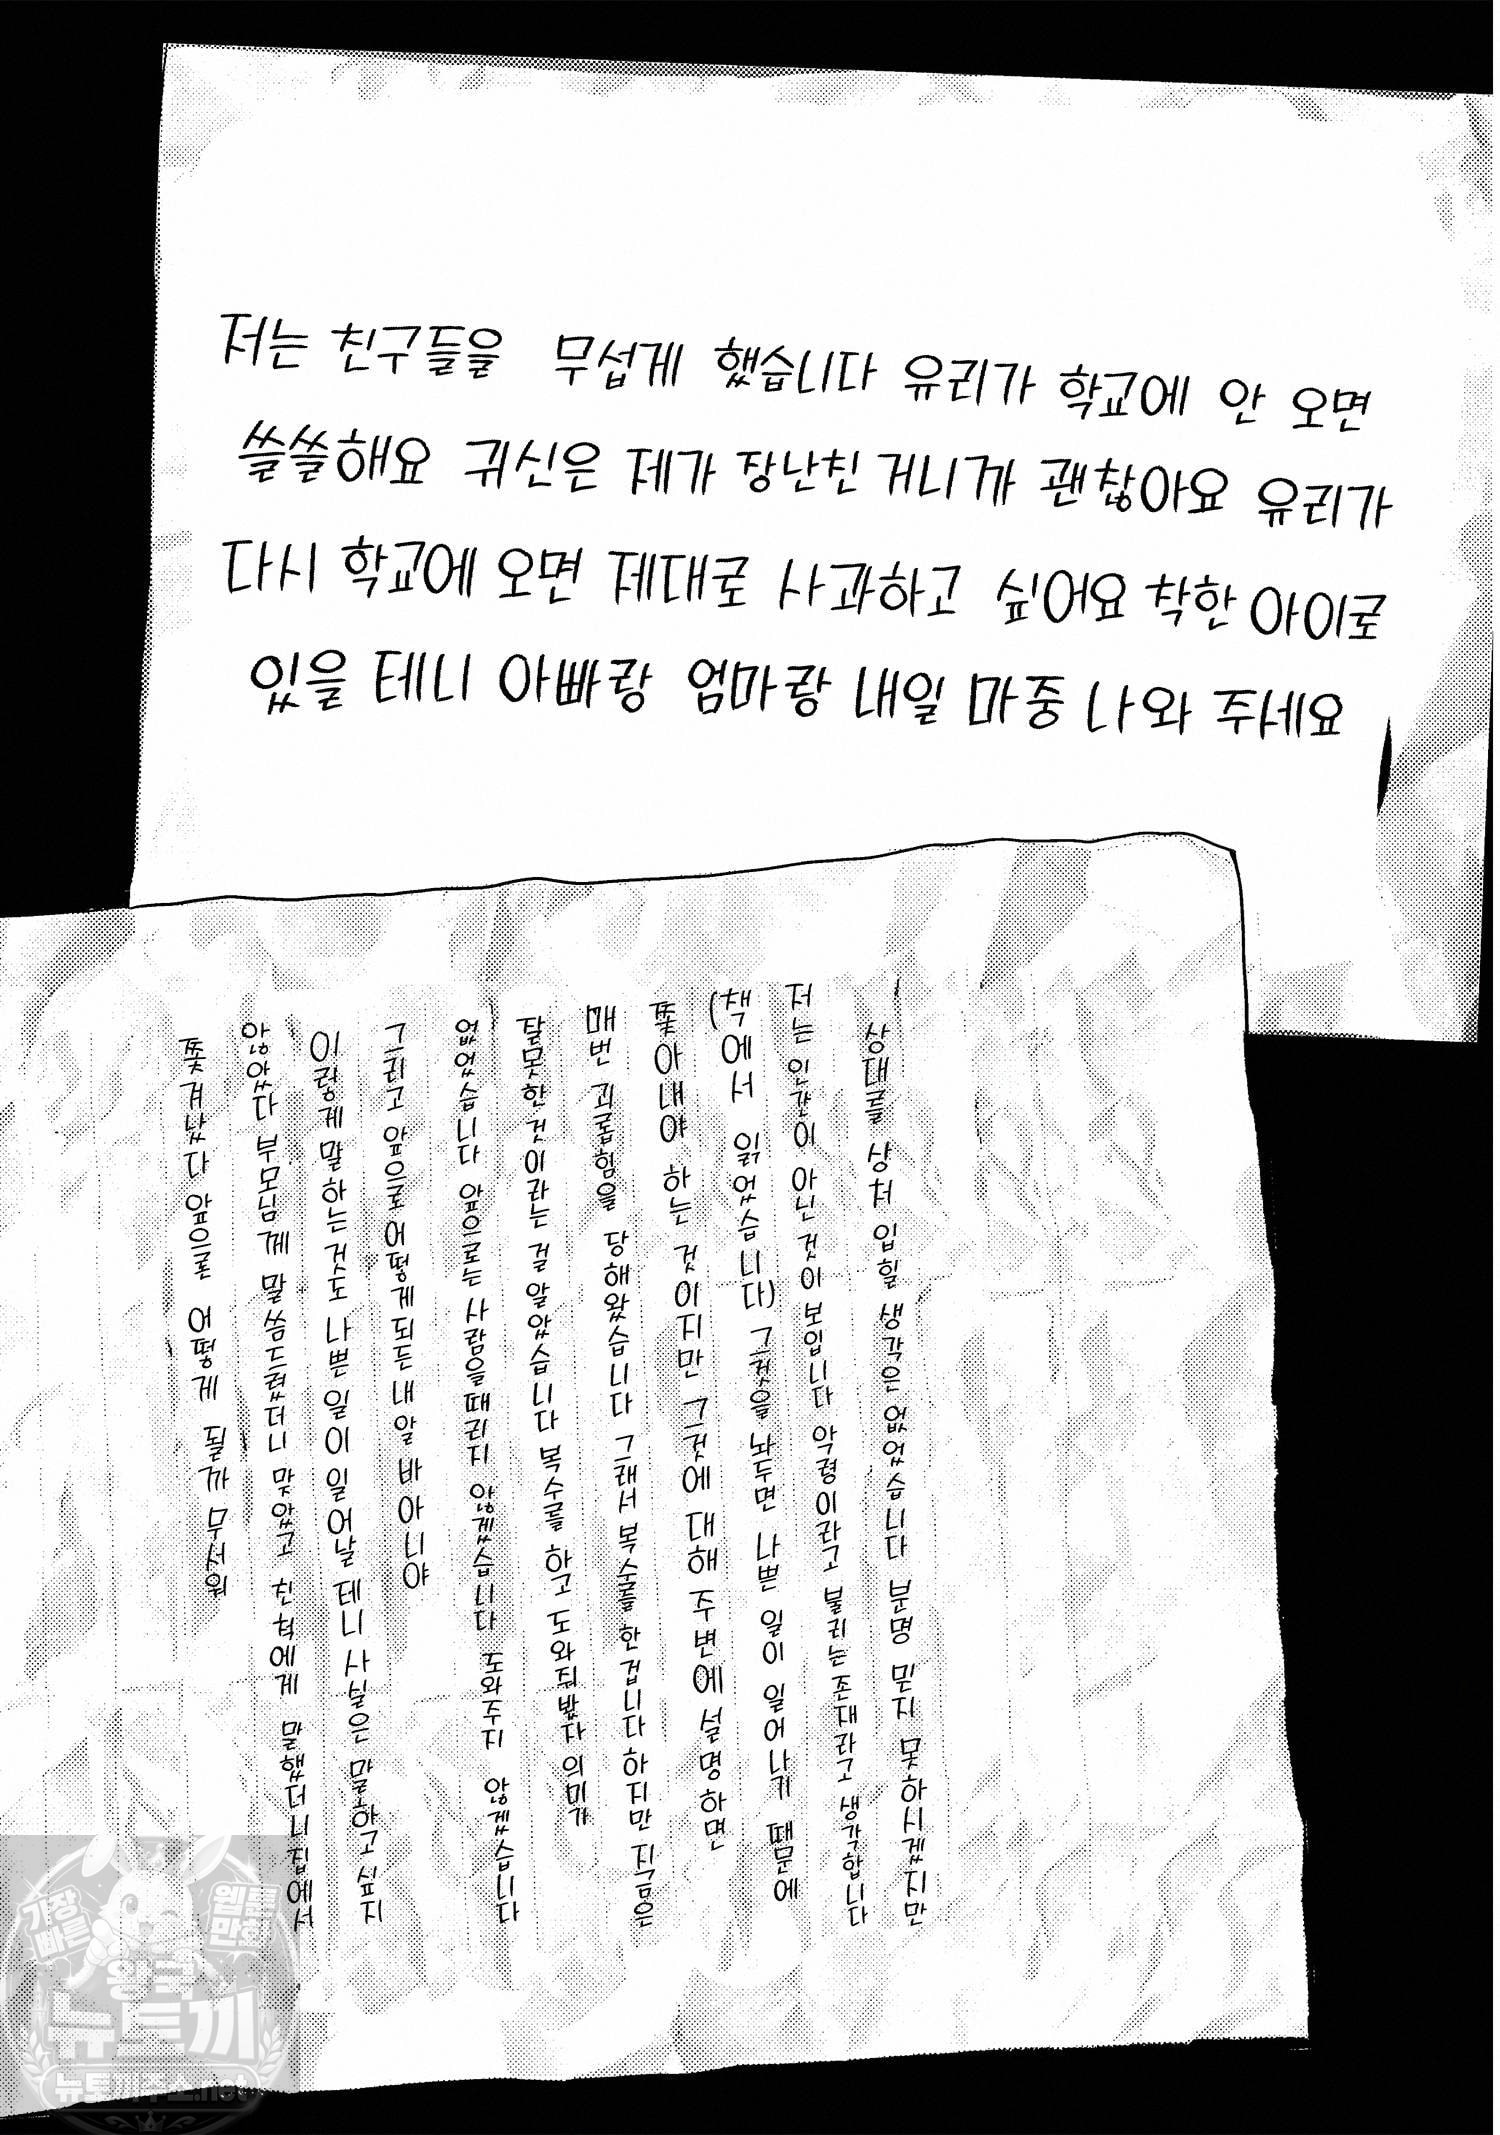 저는 친구들을 무섭게 했습니다 유리가 학교에 안 오면
쓸쓸해요 귀신은 제가 장난친 거니까 괜찮아요 유리가
다시 학교에 오면 제대로 사과하고 싶어요 착한 아이로
있을 테니 아빠랑 엄마랑 내일 마중 나와 주세요
상대를 상처 입힐 생각은 없었습니다 분명 믿지 못하시겠지만
저는 인간이 아닌 것이 보입니다 악령이라고 불리는 존재라고 생각합니다
(책에서 읽었습니다) 그것을 놔두면 나쁜 일이 일어나기 때문에
쫓아내야 하는 것이지만 그것에 대해 주변에 설명하면
매번 괴롭힘을 당해왔습니다 그래서 복수를 한 겁니다 하지만 지금은
잘못한 것이라는 걸 알았습니다 복수를 하고 도와줘봤자 의미가
없었습니다 앞으로는 사람을 때리지 않겠습니다 도와주지 않겠습니다
그리고 앞으로 어떻게 되든 내 알 바 아니야
이렇게 말하는 것도 나쁜 일이 일어날 테니 사실은 말로 하고 싶지
않았다 부모님께 말씀드렸더니 맞았고 친척에게 말했더니 집에서
쫓겨났다 앞으론 어떻게 될까 무서워
가장
빠른
웹툰
만화
왕국
뉴토끼
뉴토끼주소.net